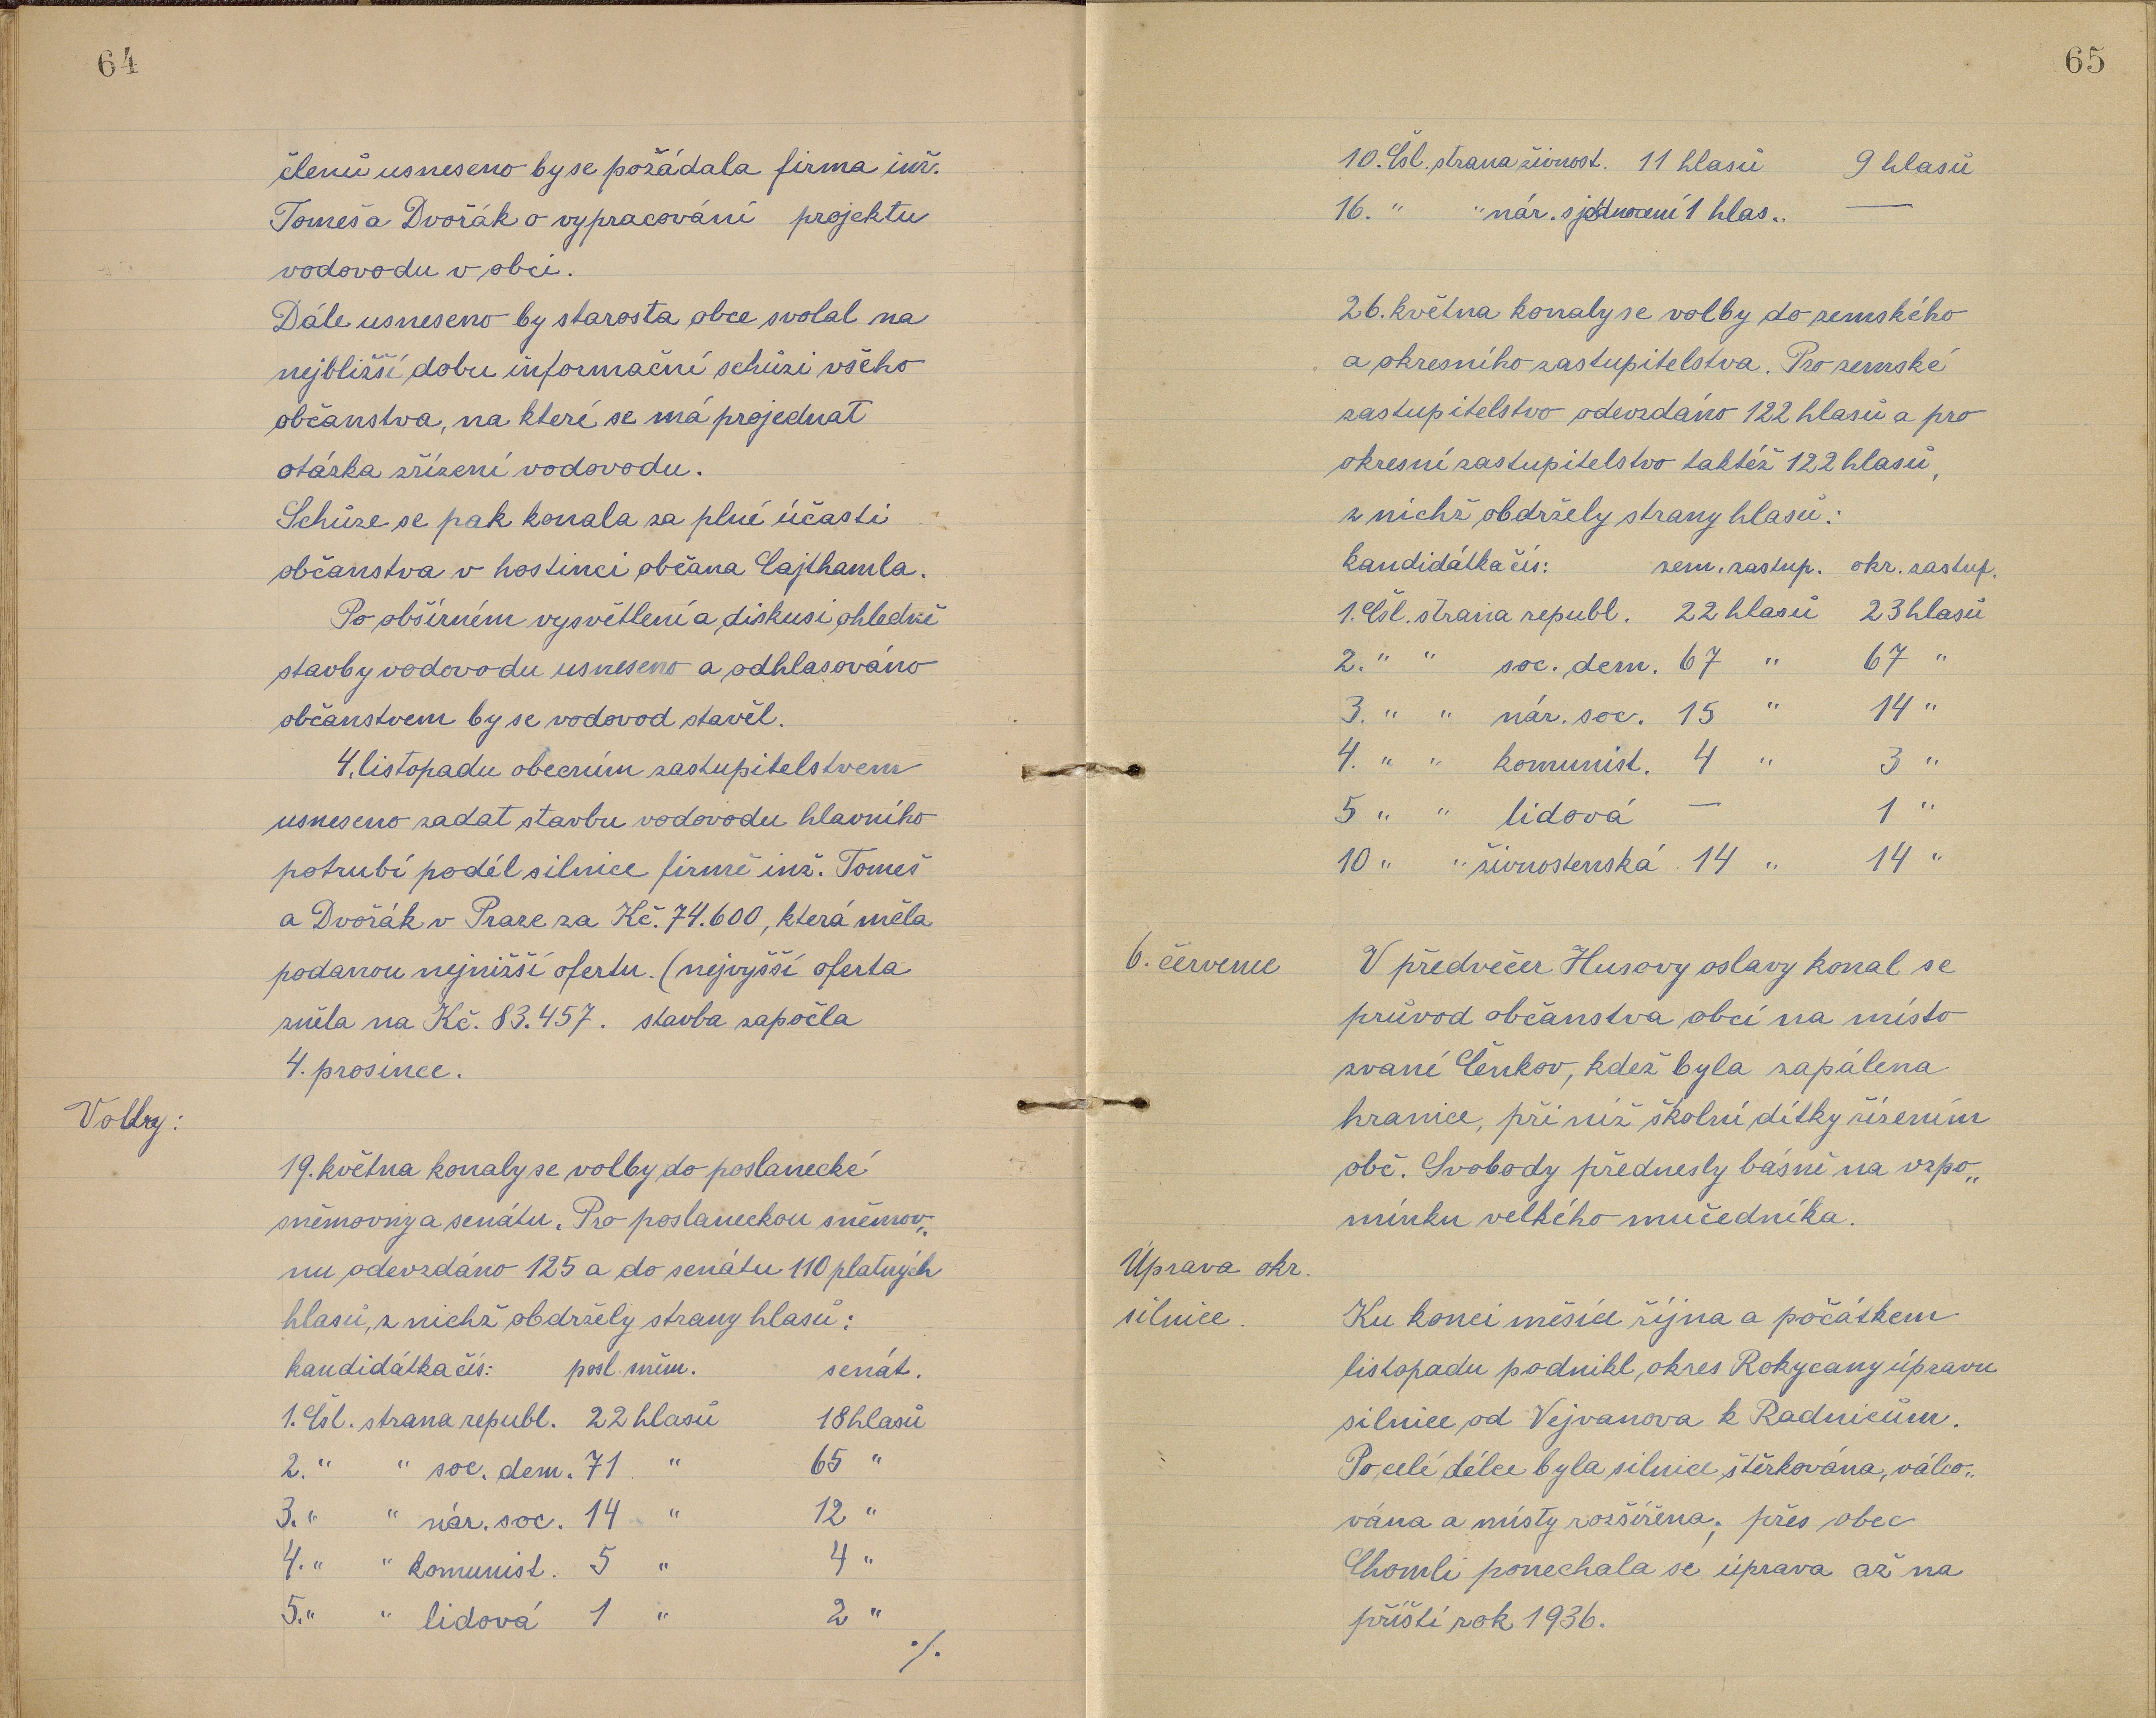 64
členů usneseno by se požádala firma inž.
Tomeš a Dvořák o vypracování projektu
vodovodu v obci.
Dále usneseno by starosta obce svolal na
nejbližší dobu informační schůzi všeho
občanstva, na které se má projednat
otázka zřízení vodovodu.
Schůze se pak konala za plné účasti
občanstva v hostinci občana Cajthamla.
Po obšírném vysvětlení a diskusi ohledně
stavby vodovodu usneseno a odhlasováno
občanstvem by se vodovod stavěl.
4. listopadu obecním zastupitelstvem
usneseno zadat stavbu vodovodu hlavního
potrubí podél silnice firmě inž. Tomeš
a Dvořák v Praze za Kč. 74.600, která měla
podanou nejnižší ofertu. (nejvyšší oferta
zněla na Kč. 83.457. stavba započla
4. prosince.
Volby:
19. května konaly se volby do poslanecké
sněmovny a senátu. Pro poslaneckou sněmov„
nu odevzdáno 125 a do senátu 110 platných
hlasů, z nichž obdržely strany hlasů:
kandidátka čís: posl. sněm. senát.
1. Čsl. strana republ. 22 hlasů 18 hlasů
2. " " soc. dem. 71 " 65 "
3. " " nár. soc. 14 " 12 "
4. " " komunist. 5 " 4 "
5. " " lidová 1 " 2 "
./.
65
10. Čsl. strana živnost. 11 hlasů 9 hlasů
16. " " nár. sjednocení 1 hlas.. —
26. května konaly se volby do zemského
a okresního zastupitelstva. Pro zemské
zastupitelstvo odevzdáno 122 hlasů a pro
okresní zastupitelstvo taktéž 122 hlasů,
z nichž obdržely strany hlasů:
kandidátka čís: zem. zastup. okr. zastup.
1. Čsl. strana republ. 22 hlasů 23 hlasů
2. " " soc. dem. 67 " 67 "
3. " " nár. soc. 15 " 14 "
4. " " komunist. 4 " 3 "
5 " " lidová — 1 "
10 " " živnostenská 14 " 14 "
6. července V předvečer Husovy oslavy konal se
průvod občanstva obcí na místo
zvané Čenkov, kdež byla zapálena
hranice, při níž školní dítky řízením
obč. Svobody přednesly básně na vzpo„
mínku velkého mučedníka.
Úprava okr.
silnice. Ku konci měsíce října a počátkem
listopadu podnikl okres Rokycany úpravu
silnice od Vejvanova k Radnicům.
Po celé délce byla silnice štěrkována, válco„
vána a místy rozšířena; přes obec
Chomli ponechala se úprava až na
příští rok 1936.